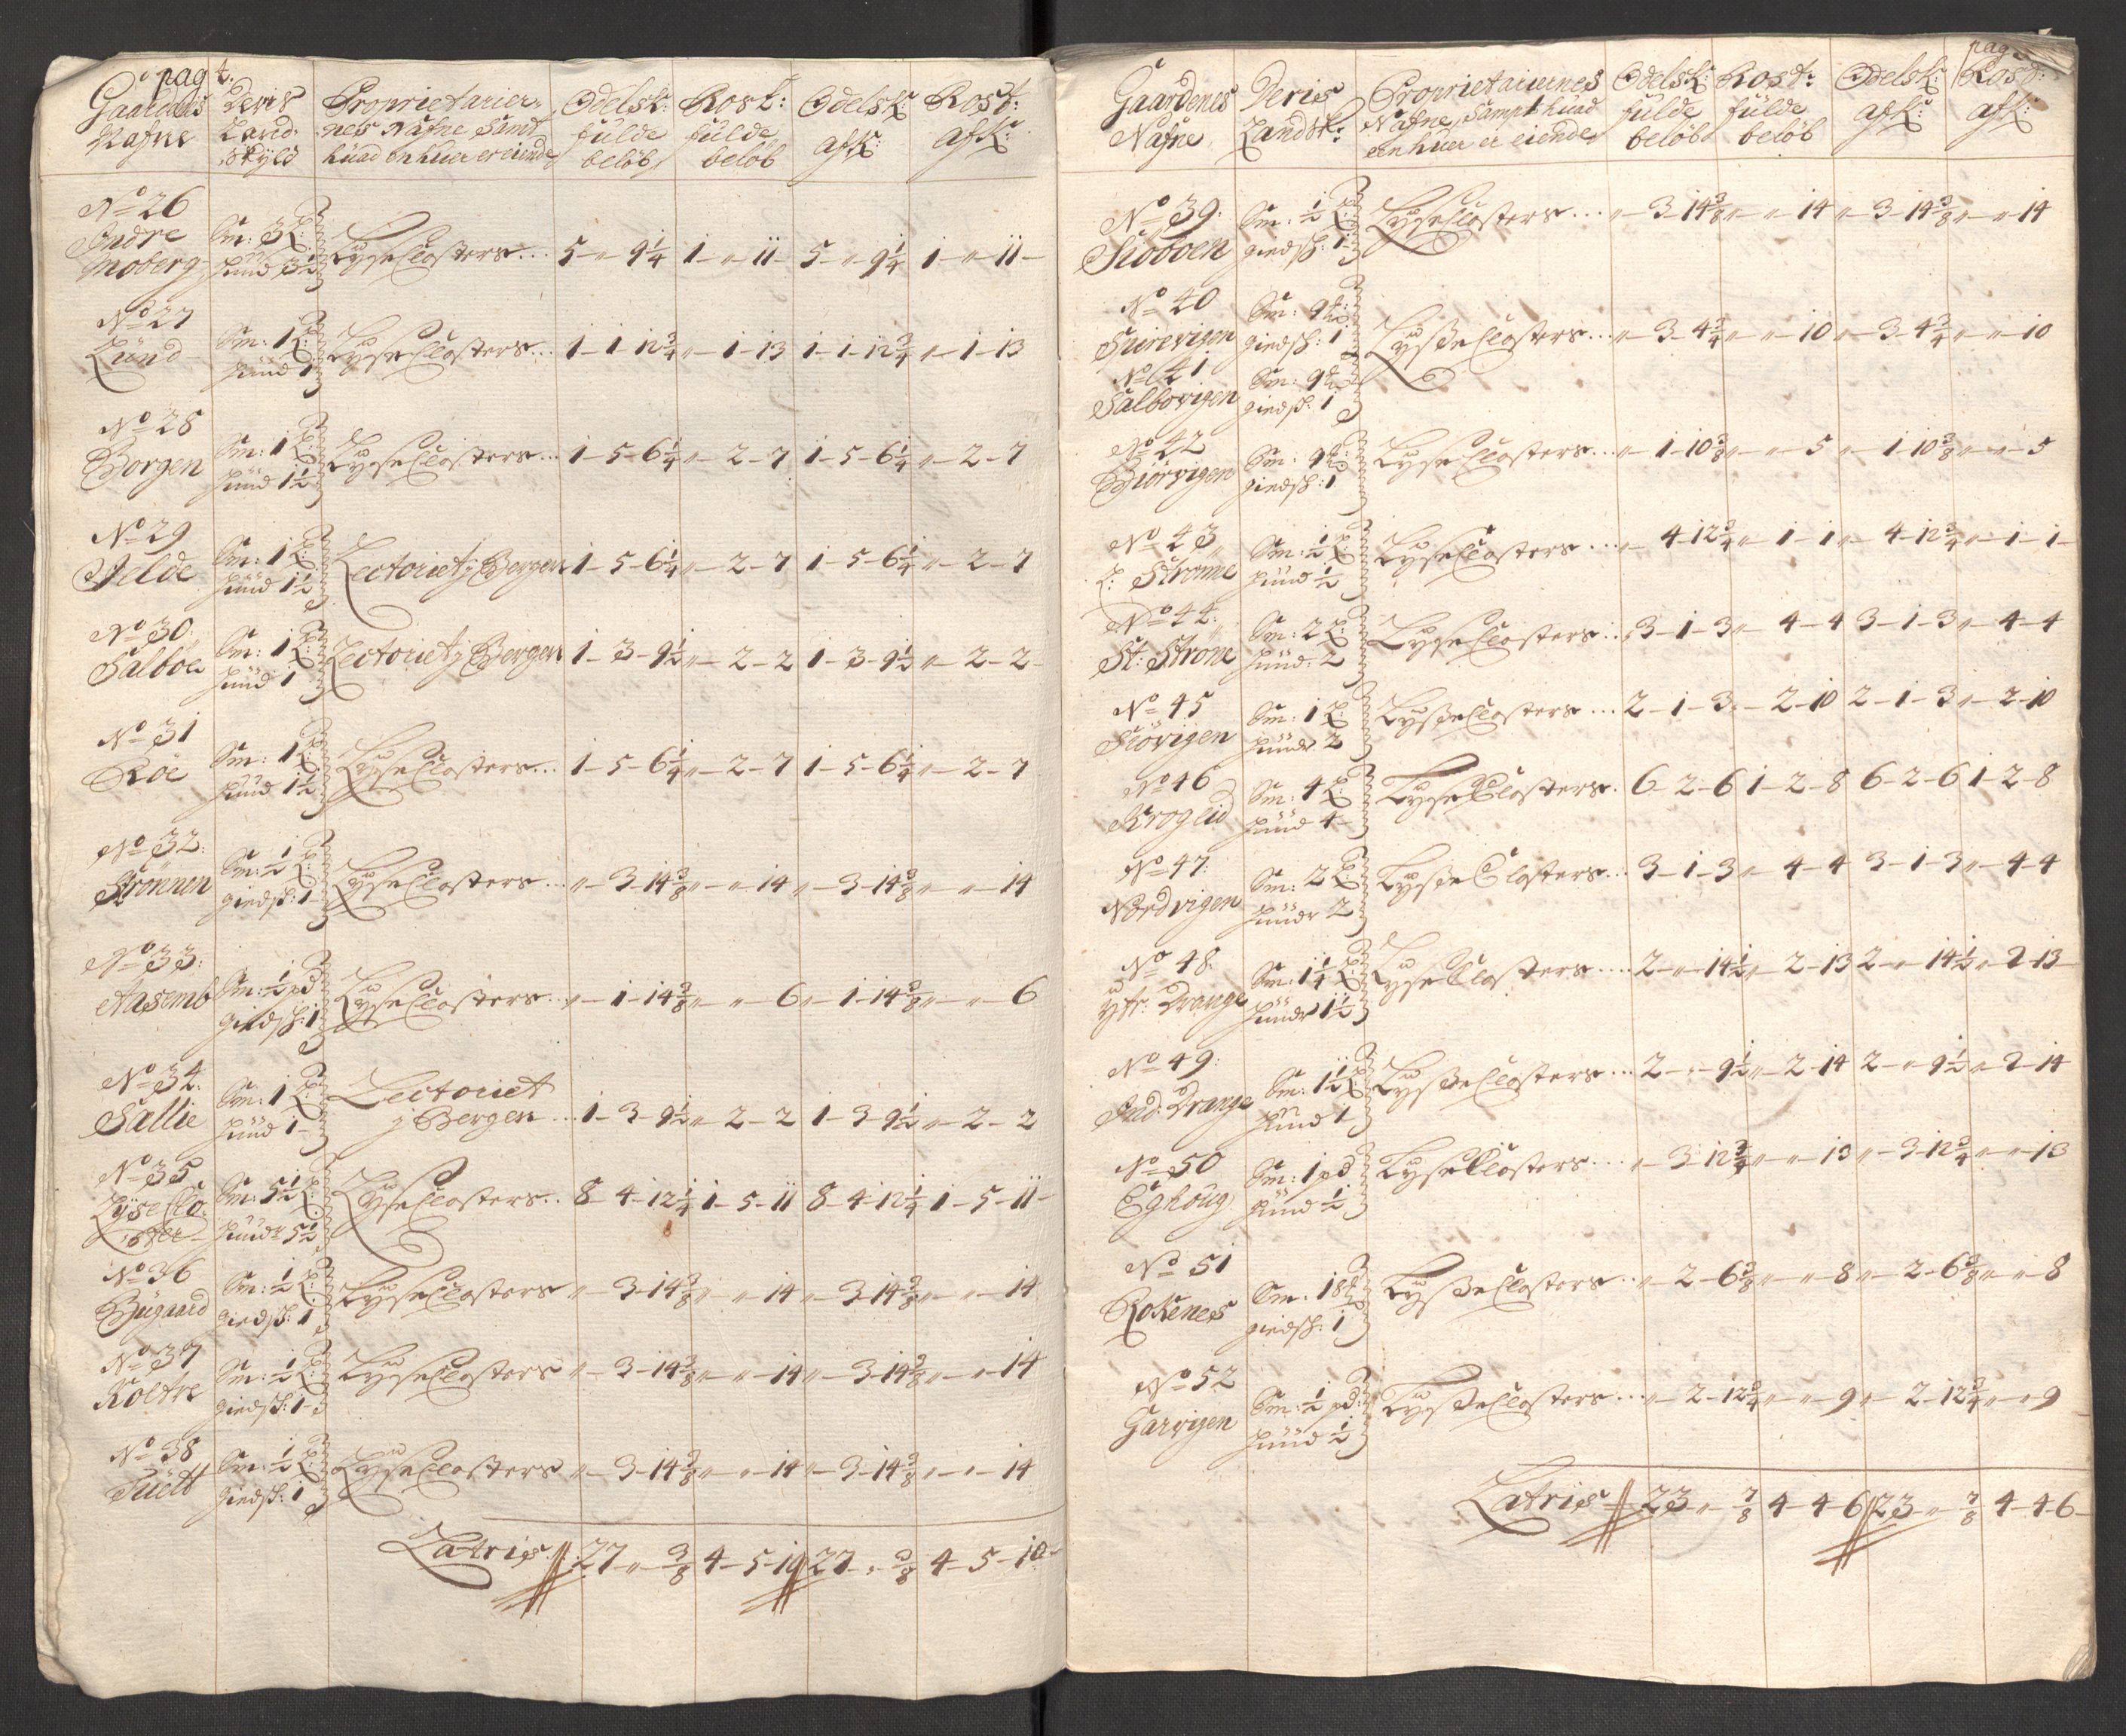 pag 4.
Gaardens Nafne
Deris Land: skyld
Proprietarier: nes Nafne Samt huad en huer er eiende
Odelsk: fulde beløb
Rost: fulde beløb
Odelsk: afk:
Rost: afk:
No 26 Indre Moberg Sm: 3 L: huud 3½ LyseClosters... 5 - „ - 9¼ 1 - „ - 11 5 - „ - 9¼ 1 - „ - 11
No 27 Lund Sm: 1 L: huud 1 LyseClosters... 1 - 1 - 12¾ „ - 1 - 13 1 - 1 - 12¾ „ - 1 - 13
No 28 Borgen Sm: 1 L: huud 1½ LyseClosters... 1 - 5 - 6¼ „ - 2 - 7 1 - 5 - 6¼ „ - 2 - 7
No 29 Helde Sm: 1 L: huud 1½ Lectoriet j Bergen 1 - 5 - 6¼ „ - 2 - 7 1 - 5 - 6¼ „ - 2 - 7
No 30: Salboe Sm: 1 L: huud 1 Lectoriet j Bergen 1 - 3 - 9½ „ - 2 - 2 1 - 3 - 9½ „ - 2 - 2
No 31 Röe Sm: 1 L: huud 1½ LyseClosters... 1 - 5 - 6¼ „ - 2 - 7 1 - 5 - 6¼ „ - 2 - 7
No 32: Strönnen Sm: ½ L: giedsk: 1 LyseClosters... „ - 3 - 14⅜ „ - „ - 14 „ - 3 - 14⅜ „ - „ - 14
No 33: Aasemb Sm: ½ pd giedsk: 1 LyseClosters.. „ - 1 - 14⅜ „ - „ - 6 „ - 1 - 14⅜ „ - „ - 6
No 34: Sallie Sm: 1 L: huud 1 Lectoriet j Bergen... 1 - 3 - 9½ „ - 2 - 2 1 - 3 - 9½ „ - 2 - 2
No 35 LyseClo: ster Sm: 5½ L: huudr 5½ LyseClosters.. 8 - 4 - 12¼ 1 - 5 - 11 8 - 4 - 12¼ 1 - 5 - 11
No 36 Bygaard Sm: ½ L: giedsk: 1 LyseClosters „ - 3 - 14⅜ „ - „ - 14 „ - 3 - 14⅜ „ - „ - 14
No 37 Koltre Sm: ½ L: giedsk: 1 LyseClosters „ - 3 - 14⅜ „ - „ - 14 „ - 3 - 14⅜ „ - „ - 14
No 38 Tuett Sm: ½ L: giedsk: 1 LyseClosters „ - 3 - 14⅜ „ - „ - 14 „ - 3 - 14⅜ „ - „ - 14
Latris 27 - „ - ⅜ 4 - 5 - 10 27 - „ - ⅜ 4 - 5 - 10
pag
Gaardenes Nafne
Deris Landsk:
Proprietariernes Nafne, Sampt huad een huer er eiende
Odelsk: fulde beløb
Rost: fulde beløb
Odelsk: afk:
Rost: afk:
No 39: Siöböen Sm: ½ L: giedsk: 1 LyseClosters... „ - 3 - 14⅜ „ - „ - 14 „ - 3 - 14⅜ „ - „ - 14
No 40 Suirevigen Sm: 9 giedsk: 1
No 41 Salbovigen Sm: 9 giedsk: 1 LysseClosters... „ - 3 - 4¾ „ - „ - 10 „ - 3 - 4¾ „ - „ - 10
No 42 Biörvigen Sm: 9 giedsk: 1 LyseClosters... „ - 1 - 10⅜ „ - „ - 5 „ - 1 - 10⅜ „ - „ - 5
No 43 L: Strömme Sm: ½ L: huud ½ LyseClosters... „ 4 - 12¾ „ - 1 - 1 „ 4 - 12¾ „ - 1 - 1
No 44: St: Ströme Sm: 2 L: huud: 2 LyseClosters.. 3 - 1 - 3 „ - 4 - 4 3 - 1 - 3 „ - 4 - 4
No 45 Siövigen Sm: 1 L: huudr 2 LysseClosters... 2 - 1 - 3 „ - 2 - 10 2 - 1 - 3 „ - 2 - 10
No 46 Krogeid Sm: 4 L: huud 4 LyseClosters. 6 - 2 - 6 1 - 2 - 8 6 - 2 - 6 1 - 2 - 8
No 47: Nordvigen Sm: 2 L: huudr 2 LysseClosters... 3 - 1 - 3 „ - 4 - 4 3 - 1 - 3 „ - 4 - 4
No 48: ytr: Drange Sm: 1¼ L: huudr 1½ LyseClosters.... 2 - „ - 14½ „ - 2 - 13 2 - „ - 14½ „ - 2 - 13
No 49: Ind: Drange Sm: 1½ L: huud 1 LysseClosters... 2 - „ - 9½ „ - 2 - 14 2 - „ - 9½ „ - 2 - 14
No 50 Eghoug Sm: 1 pd huud ½ LyseClosters... „ - 3 - 12¾ „ - „ - 13 „ - 3 - 12¾ „ - „ - 13
No 51 Rokenes Sm: 18 giedsk: 1 LysseClosters.. „ - 2 - 6⅜ „ - „ - 8 „ - 2 - 6⅜ „ - „ - 8
No 52 Garvigen Sm: ½ pd: huud ½ LysseClosters... „ - 2 - 12¾ „ - „ - 9 „ - 2 - 12¾ „ - „ - 9
Latris 23 - „ - ⅞ 4 - 4 - 6 23 - „ - ⅞ 4 - 4 - 6